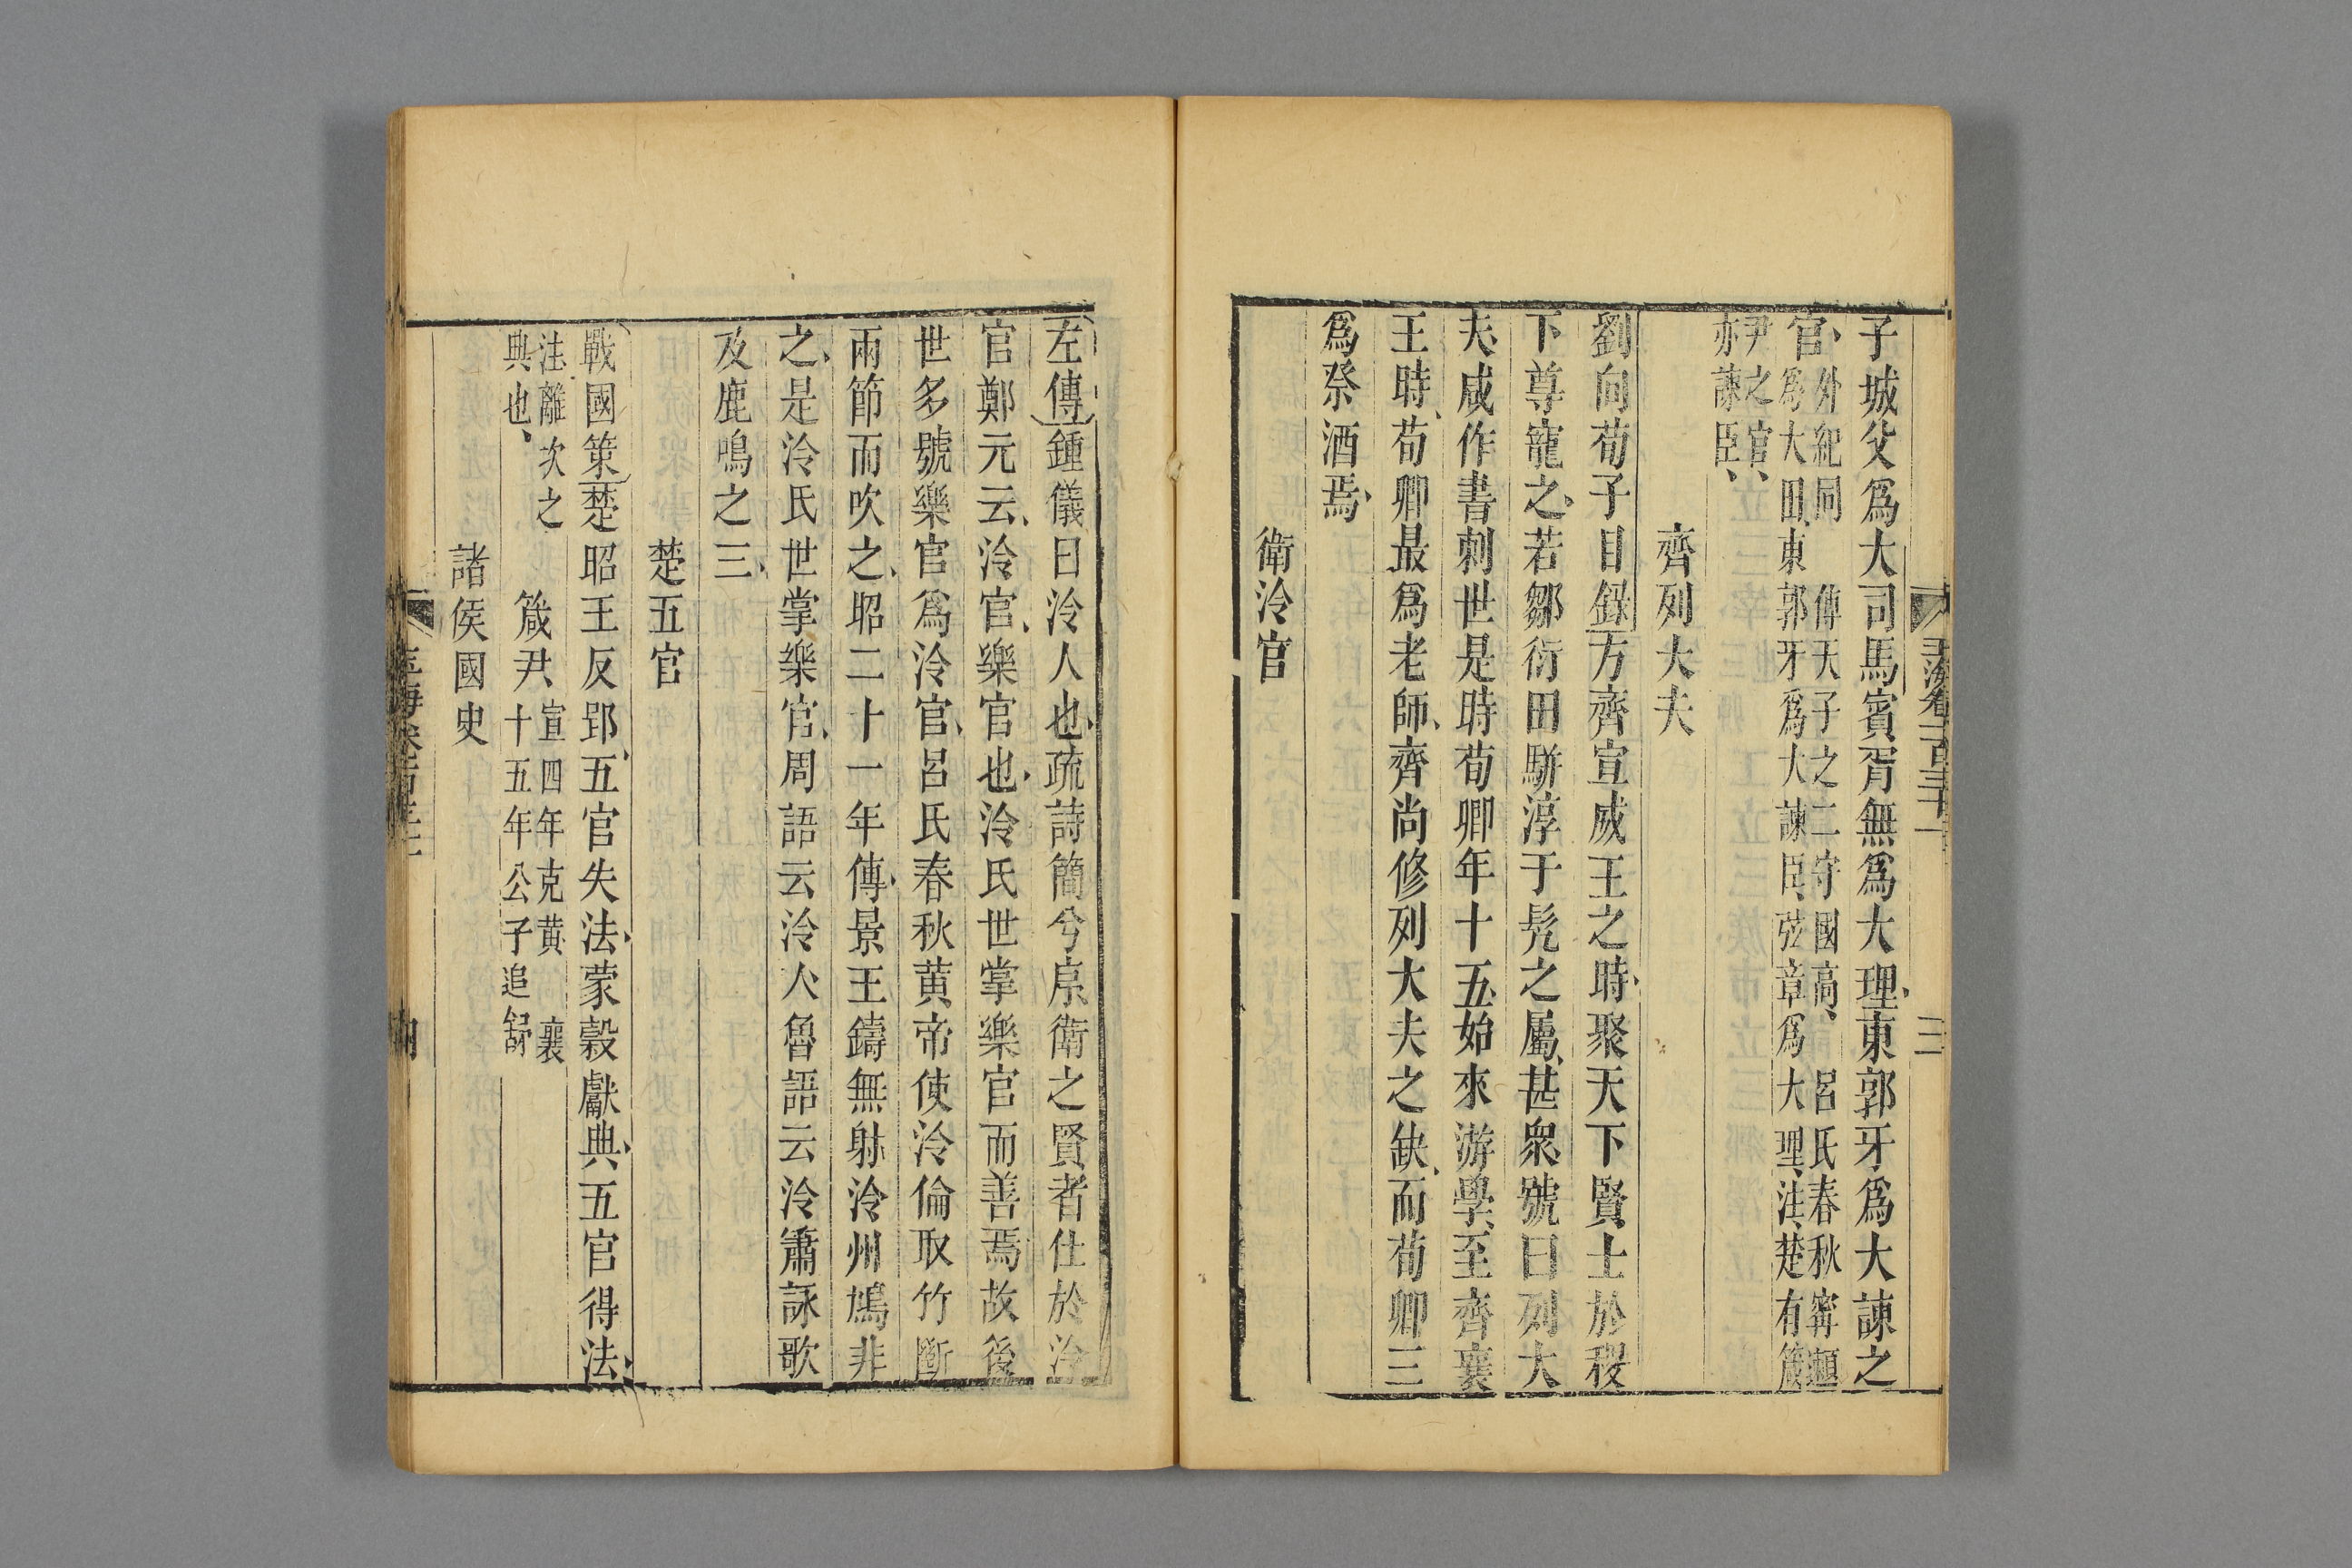 玉海卷一百三十一
三
子城父爲大司馬賓胥無爲大理東郭牙爲大諫之
官外紀同 傳天子之二守國高、 呂氏春秋甯遬
爲大田東郭牙爲大諫臣弦章爲大理注楚有箴
尹之官、
亦諫臣、
齊列大夫
劉向荀子目錄方齊宣威王之時聚天下賢士於稷
下尊寵之若鄒衍田駢淳于髡之屬甚衆號曰列大
夫咸作書刺世是時荀卿年十五始來游學至齊襄
王時荀卿最爲老師齊尚修列大夫之缺而荀卿三
爲祭酒焉
衛泠官
左傳鍾儀曰泠人也疏詩簡兮序衛之賢者仕於泠
官鄭元云泠官樂官也泠氏世掌樂官而善焉故後
世多號樂官爲泠官呂氏春秋黃帝使泠倫取竹斷
兩節而吹之昭二十一年傳景王鑄無射泠州鳩非
之是泠氏世掌樂官周語云泠人魯語云泠簫詠歌
及鹿鳴之三
楚五官
戰國策楚昭王反郢五官失法蒙穀獻典五官得法
注離次之
典也、
箴尹宣四年克黃 襄
十五年公子追舒
諸侯國史